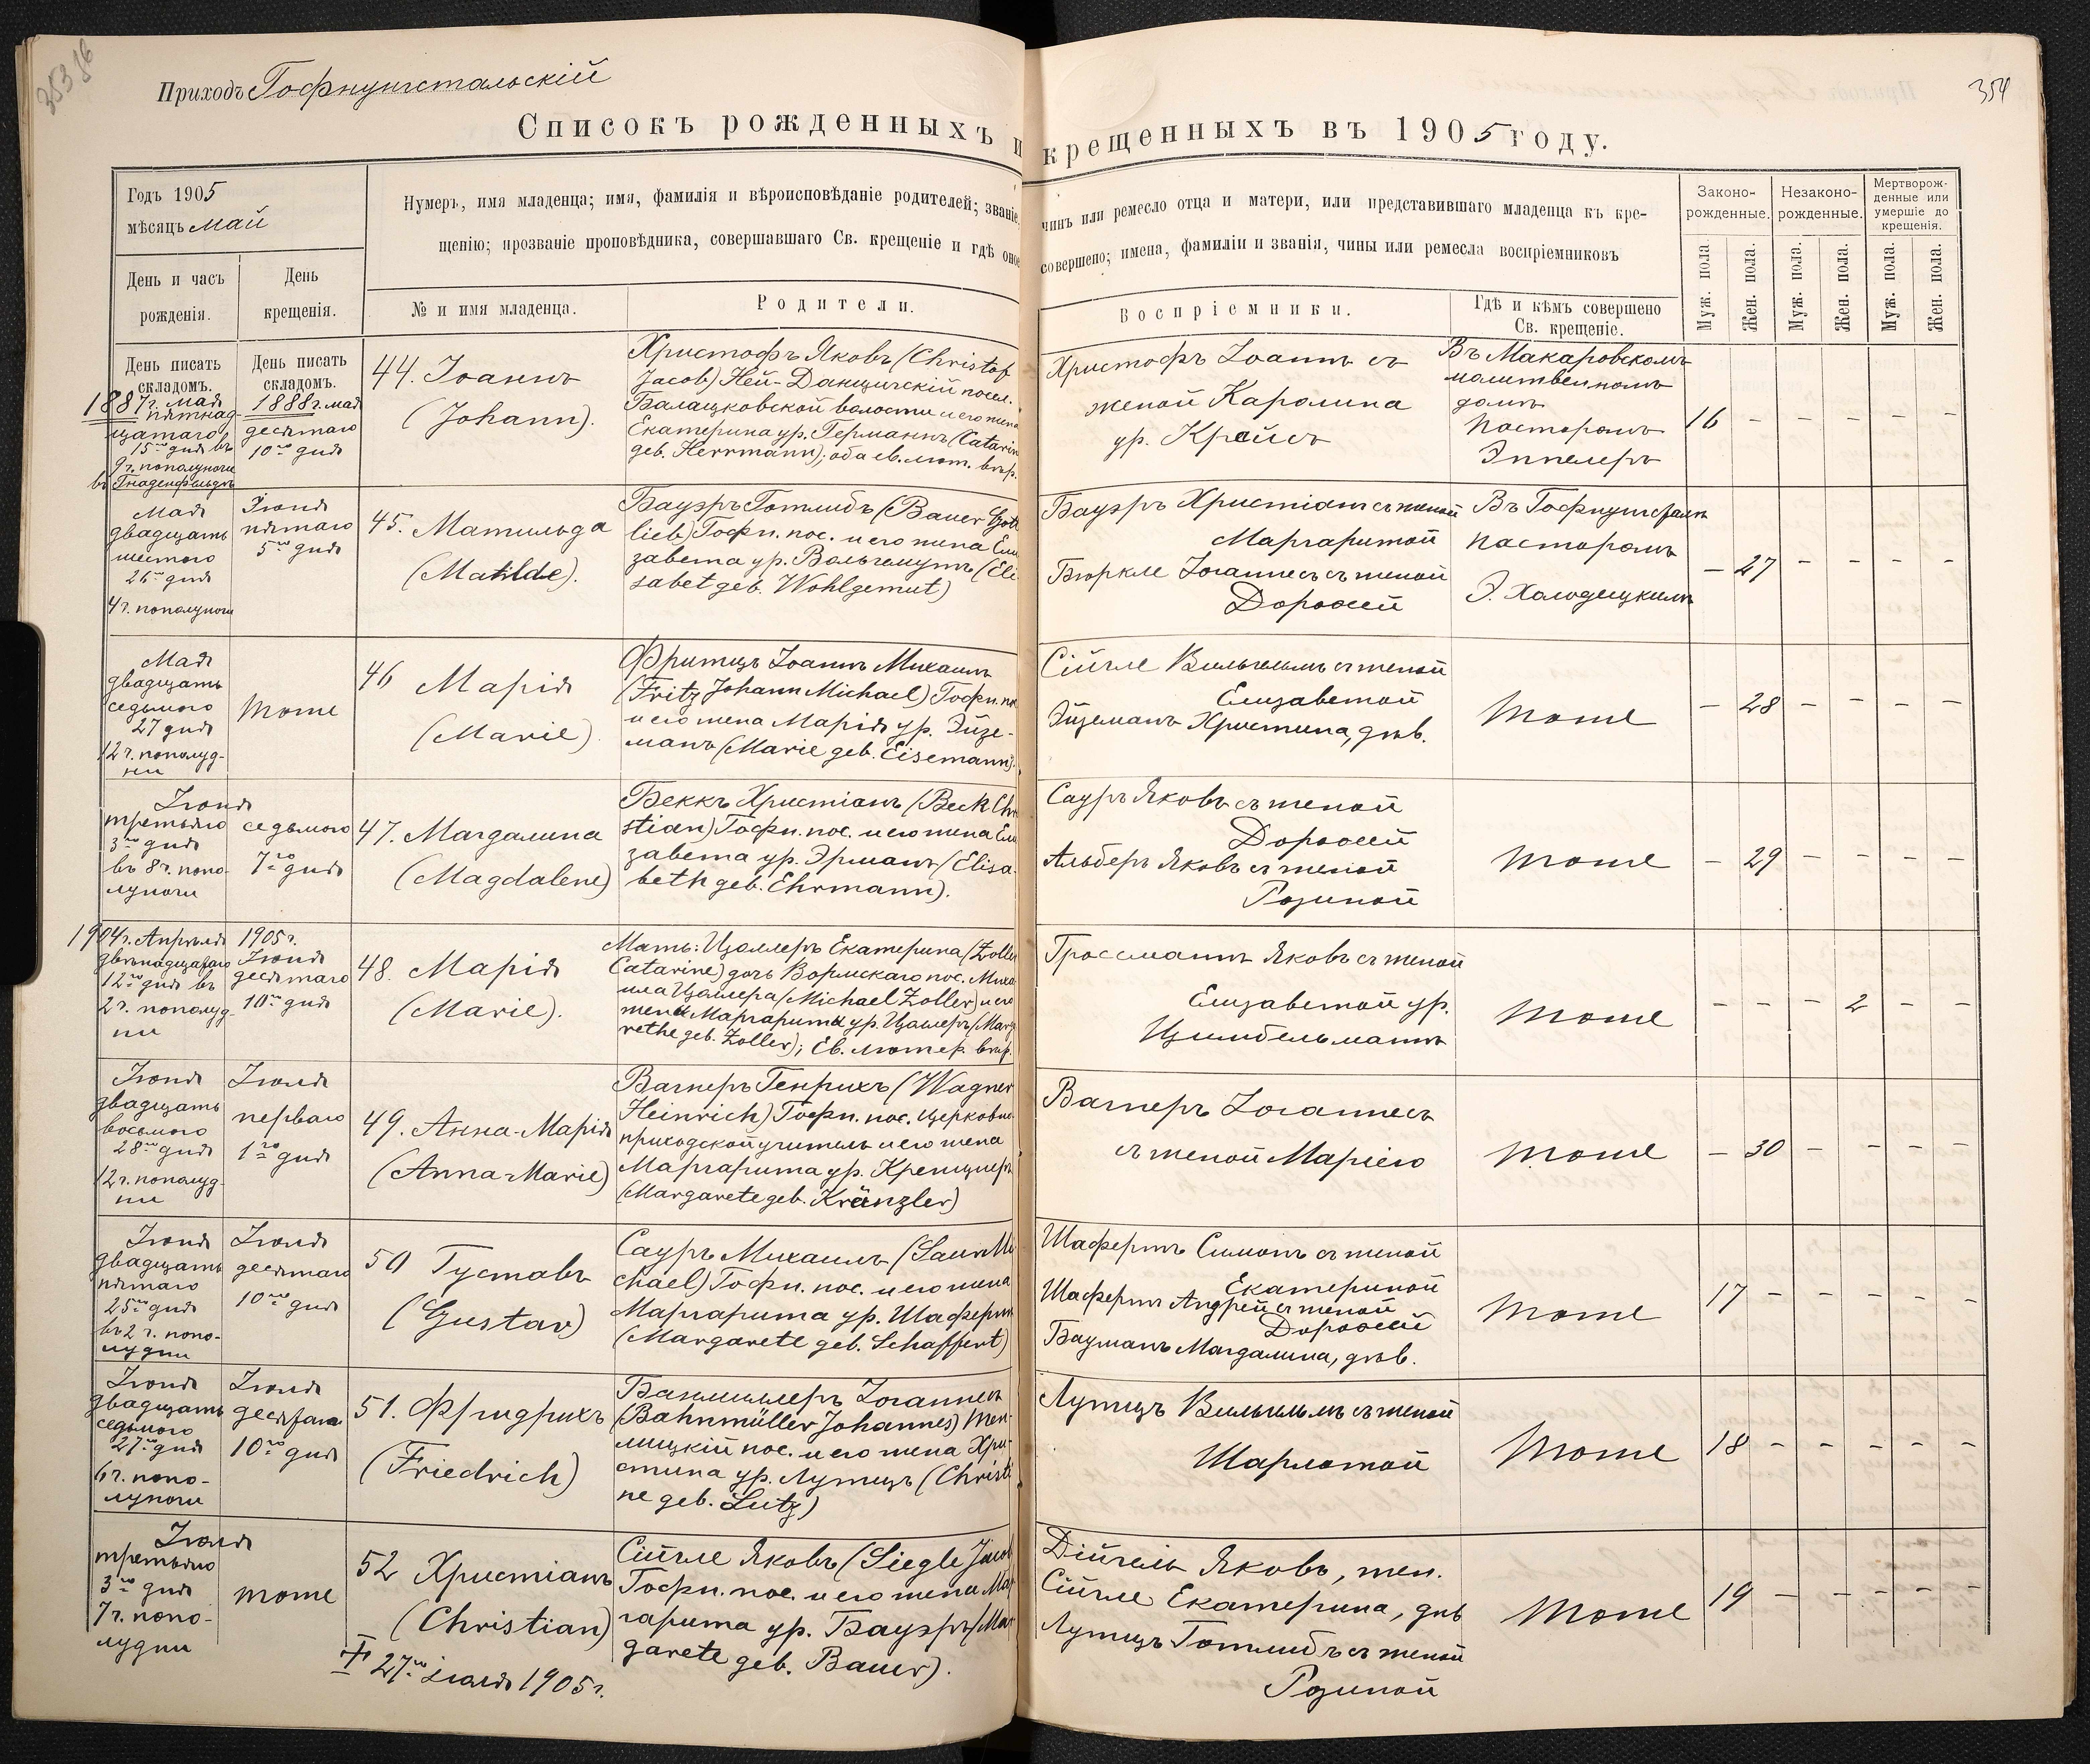 353 об
354
Приходъ Гофнунгстальскій
Списокъ рожденныхъ и крещенныхъ въ 1905 году.
Годъ 1905
мѣсяцъ Май
Нумеръ, имя младенца; имя, фамилія и вѣроисповѣданіе родителей; званіе, чинъ или ремесло отца и матери, или представившаго младенца къ кре-
щенію; прозваніе проповѣдника, совершавшаго Св. крещеніе и гдѣ оное совершено; имена, фамиліи и званія, чины или ремесла воспріемниковъ
Законо-
рожденные.
Незаконо-
рожденные.
Мертворож-
денные или
умершіе до
крещенія.
День и часъ
рожденія.
День
крещенія.
№ и имя младенца.
Родители.
Воспріемники.
Гдѣ и кѣмъ совершено
Св. крещеніе.
Муж. пола
Жен. пола.
Муж. пола.
Жен. пола.
Муж. пола.
Жен. пола.
День писать
складомъ.
1887г. мая
пятнад-
цатаго
15го дня въ
9 г. пополуночи
въ Гнаденфельдѣ
День писать
складомъ.
1888г. мая
десятаго
10го дня
44. Іоаннъ
(Johann).
Христофъ Яковъ (Christof
Jacob) Ней-Данцигскій посел.
Балацковской волости и его жена
Екатерина ур. Германнъ (Catarin
geb. Herrmann); оба ев. лют. вѣр.
Христофъ Іоаннъ съ
женой Каролина
ур. Крейсъ
Въ Макаровскомъ
молитвенномъ
домѣ
Пасторомъ
Эппелеръ
16 – – – – –
Мая
двадцать
шестого
26го дня
4 г. пополуночи
Іюня
пятаго
5го дня
45. Матильда
(Matilde).
Бауэръ Готлибъ (Bauer Gott
lieb) Гофн. пос. и его жена Ели
завета ур. Вольгемутъ (Eli
sabet geb. Wohlgemut)
Бауэръ Христіанъ съ женой
Маргаритой
Бюркле Іоганнесъ съ женой
Доротеей
Въ Гофнунгсталѣ
пасторомъ
Э. Холодецкимъ
– 27 – – – –
Мая
двадцать
седьмого
27 дня
12 г. пополуд-
ни
тоже
46 Марія
(Marie)
Фритцъ Іоаннъ Михаилъ
(Fritz Johann Michael) Гофн. по
и его жена Марія ур. Эйзе-
манъ (Marie geb. Eisemann).
Сійгле Вильгельмъ съ женой
Елизаветой
Эйземанъ Христина, дѣв.
тоже
– 28 – – – –
Іюня
третьяго
3го дня
въ 8 г. попо-
луночи
седьмого
7го дня
47. Магдалина
(Magdalene)
Беккъ Христіанъ (Beck Chri
stian) Гофн. пос. и его жена Ели
завета ур. Эрманъ (Elisa-
beth geb. Ehrmann).
Сауръ Яковъ съ женой
Доротеей
Альберъ Яковъ съ женой
Розиной
тоже
– 29 – – – –
1904г. Апрѣля
двѣнадцатаго
12го дня въ
2 г. пополуд-
ни
1905г.
Іюня
десятаго
10го дня
48. Марія
(Marie).
Мать: Цоллеръ Екатерина (Zoller
Catarine) дочь Вормскаго пос. Миха
ила Цоллера (Michael Zoller) и его
жены Маргариты ур. Цоллеръ (Marg
rethe geb. Zoller); Ев. лютер. вѣр.
Гроссманнъ Яковъ съ женой
Елизаветой ур.
Цимбельманнъ
тоже
– – – 2 – –
Іюня
двадцать
восьмого
28го дня
12 г. пополуд-
ни
Іюля
перваго
1го дня
49. Анна-Марія
(Anna-Marie)
Вагнеръ Генрихъ (Wagner
Heinrich) Гофн. пос. Церковно-
приходской учитель и его жена
Маргарита ур. Кренцлеръ
(Margarete geb. Kränzler)
Вагнеръ Іоганнесъ
съ женой Маріею
тоже
– 30 – – – –
Іюня
двадцать
пятаго
25го дня
въ 2 г. попо-
лудни
Іюля
десятаго
10го дня
50 Густавъ
(Gustav)
Сауръ Михаилъ (Saur Mi
chael) Гофн. пос. и его жена
Маргарита ур. Шафертъ
(Margarete geb. Schaffert)
Шафертъ Симонъ съ женой
Екатериной
Шафертъ Андрей съ женой
Доротеей
Бауманъ Магдалина, дѣв.
тоже
17 – – – – –
Іюня
двадцать
седьмого
27го дня
6 г. попо-
луночи
Іюля
десятаго
10го дня
51. Фридрихъ
(Friedrich)
Банмиллеръ Іоганнесъ
(Bahnmüller Johannes) Теп-
лицкій пос. и его жена Хри-
стина ур. Лутцъ (Christi
ne geb. Lutz)
Лутцъ Вильгельмъ съ женой
Шарлотой
тоже
18 – – – – –
Іюля
третьяго
3го дня
7 г. попо-
лудни
тоже
52 Христіанъ
(Christian)
† 27го іюля 1905г.
Сійгле Яковъ (Siegle Jacob
Гофн. пос. и его жена Мар
гарита ур. Бауэръ (Mar
garete geb. Bauer).
Дійгель Яковъ, жен.
Сійгле Екатерина, дѣв
Лутцъ Готлибъ съ женой
Розиной
тоже
19 – – – – –